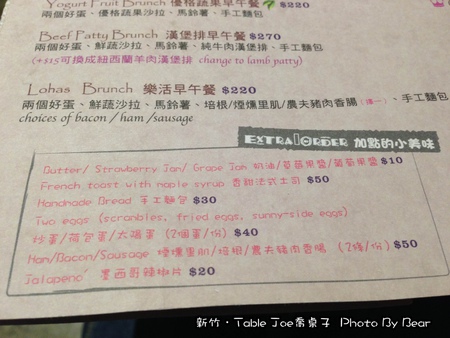 Yogurt Fruit Brunch 優格蔬果早午餐 $220
兩個好蛋、優格蔬果沙拉、馬鈴薯、手工麵包
Beef Patty Brunch 漢堡排早午餐 $270
兩個好蛋、鮮蔬沙拉、馬鈴薯、純牛肉漢堡排、手工麵包
(+$15可換成紐西蘭羊肉漢堡排 change to lamb patty)
Lohas Brunch 樂活早午餐 $220
兩個好蛋、鮮蔬沙拉、馬鈴薯、培根/煙燻里肌/農夫豬肉香腸(擇一)、手工麵包
choices of bacon / ham /sausage
EXTRA ORDER 加點的小美味
Butter/ Strawberry Jam/ Grape Jam 奶油/草莓果醬/葡萄果醬 $10
French toast with maple syrup 香甜法式土司 $50
Handmade Bread 手工麵包 $30
Two eggs (scrambles, fried eggs, sunny-side eggs)
炒蛋/荷包蛋/太陽蛋 (2個蛋/份) $40
Ham/Bacon/Sausage 煙燻里肌/培根/農夫豬肉香腸 (2條/份) $50
Jalapeno' 墨西哥辣椒片 $20
新竹‧Table Joe喬桌子 Photo By Bear